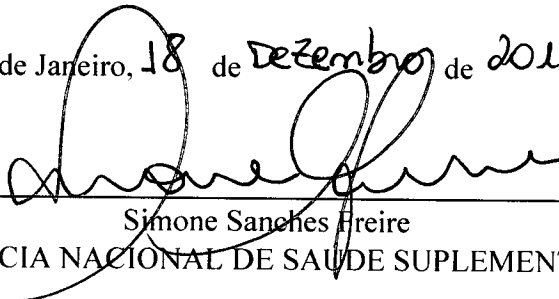 de Janeiro, 18 de Dezembro de 201
Simone Sanches Freire
CIA NACIONAL DE SAUDE SUPLEMEN